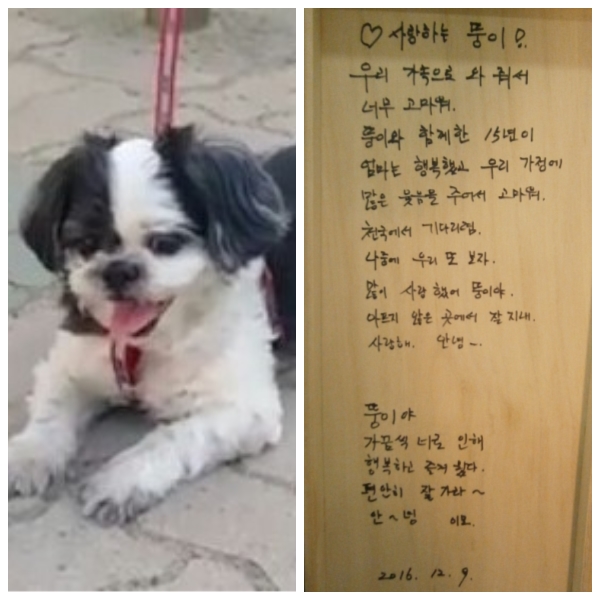 ♡ 사랑하는 뚱이!
우리 가족으로 와 줘서
너무 고마워.
뚱이와 함께한 15년이
엄마는 행복했고 우리 가정에
많은 웃음을 주어서 고마워.
천국에서 기다리렴.
나중에 우리 또 보자.
많이 사랑했어 뚱이야.
아프지 않은 곳에서 잘 지내.
사랑해. 안녕~.
뚱이야
가끔씩 너로 인해
행복하고 즐거웠다.
편안히 잘 가라~
안~녕 이모.
2016. 12. 9.